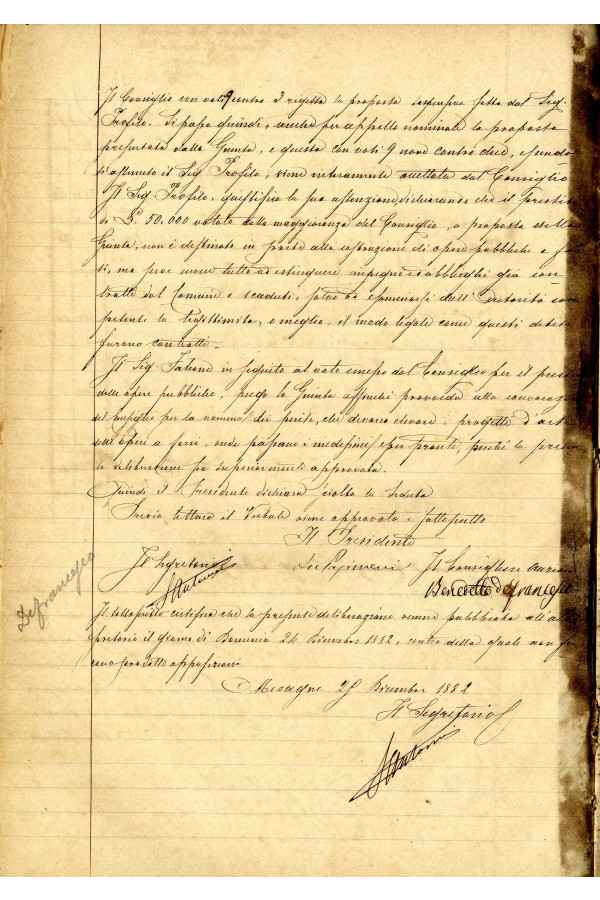 Il Consiglio con voti 9 contro 3 rigetta la proposta sospensiva fatta dal Sig.
Profilo. Si passa quindi, anche per appello nominale la proposta
presentata dalla Giunta, e questa con voti 9 nove contro dieci, essendo
si astenuto il Sig. Profilo, viene interamente accettata dal Consiglio
Il Sig. Profilo, giustifica la sua astenzione, dichiarando che il prestito
de £. 50.000 votato dalla maggioranza del Consiglio, a proposta della
Giunta, non è destinato in parte alla costruzione di opere pubbliche e
ma serve invece tutto ad estinguere impegni ed obblighi già con
tratti dal Comune e scaduti, salvo ad esaminarsi dall'Autorità com
petente la legittimità, o meglio, il modo legale come questi debiti
furono contratti.
Il Sig. in seguito al voto emesso dal Consiglio per il
delle opere pubbliche, prega la Giunta affinchè provveda alla convocazio
del Consiglio per la nomina dei periti, che devono elevare i progetti d'arte
opere a farsi, onde passano i medesimi esser pronti, perchè la presen
te deliberazione fia superiormente approvata.
Quindi il Presidente dichiara sciolta la seduta
Previa lettura il Verbale viene approvato e sottoscritto
Il Presidente
Il Segretario Il Consigliere anziano
Benedetto Defrancesco
Defrancesco
Il sottoscritto certifica che la presente deliberazione venne pubblicata all'albo
pretorio il giorno di Domenica 24 Dicembre 1882, contro della quale non fu
rono prodotte opposizioni
Mesagne 25 Dicembre 1882
Il Segretario